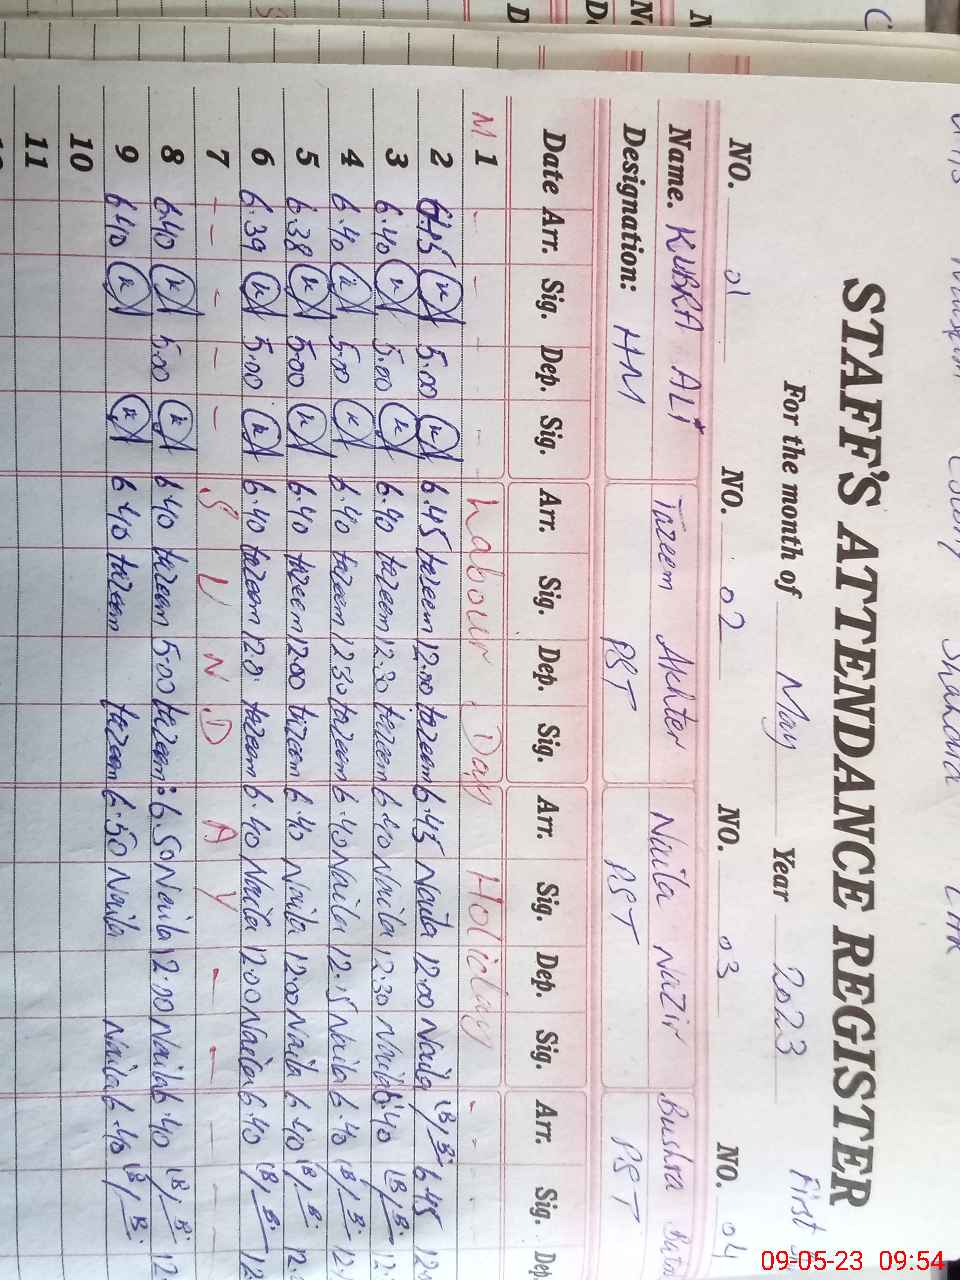 STAFF'S ATTENDANCE REGISTER
For the month of May Year 2023 First
NO. 01 NO. 02 NO. 03 NO. 04
Name. KUBRA ALI Tazeem Akhter Naila Nazir Bushra
Designation: HM PST PST PST
Date Arr. Sig. Dep. Sig. Arr. Sig. Dep. Sig. Arr. Sig. Dep. Sig. Arr. Sig. Dep.
M 1 - - - - Labour Day Holiday - -
2 6.45 5.00 6.45 tazeem 12.00 tazeem 6.45 Naila 12.00 Naila 6.45
3 6.40 5.00 6.40 tazeem 12.30 tazeem 6.40 Naila 12.30 Naila 6.40
4 6.40 5.00 6.40 tazeem 12.30 tazeem 6.40 Naila 12.15 Naila 6.40
5 6.38 5.00 6.40 tazeem 12.00 tazeem 6.40 Naila 12.00 Naila 6.40
6 6.39 5.00 6.40 tazeem 12.0 tazeem 6.40 Naila 12.00 Naila 6.40
7 - - - - - SUNDAY - - - - -
8 6.40 5.00 6.40 tazeem 5.00 tazeem 6.50 Naila 12.00 Naila 6.40
9 6.40 6.40 tazeem tazeem 6.50 Naila Naila 6.40
10
11
09-05-23 09:54